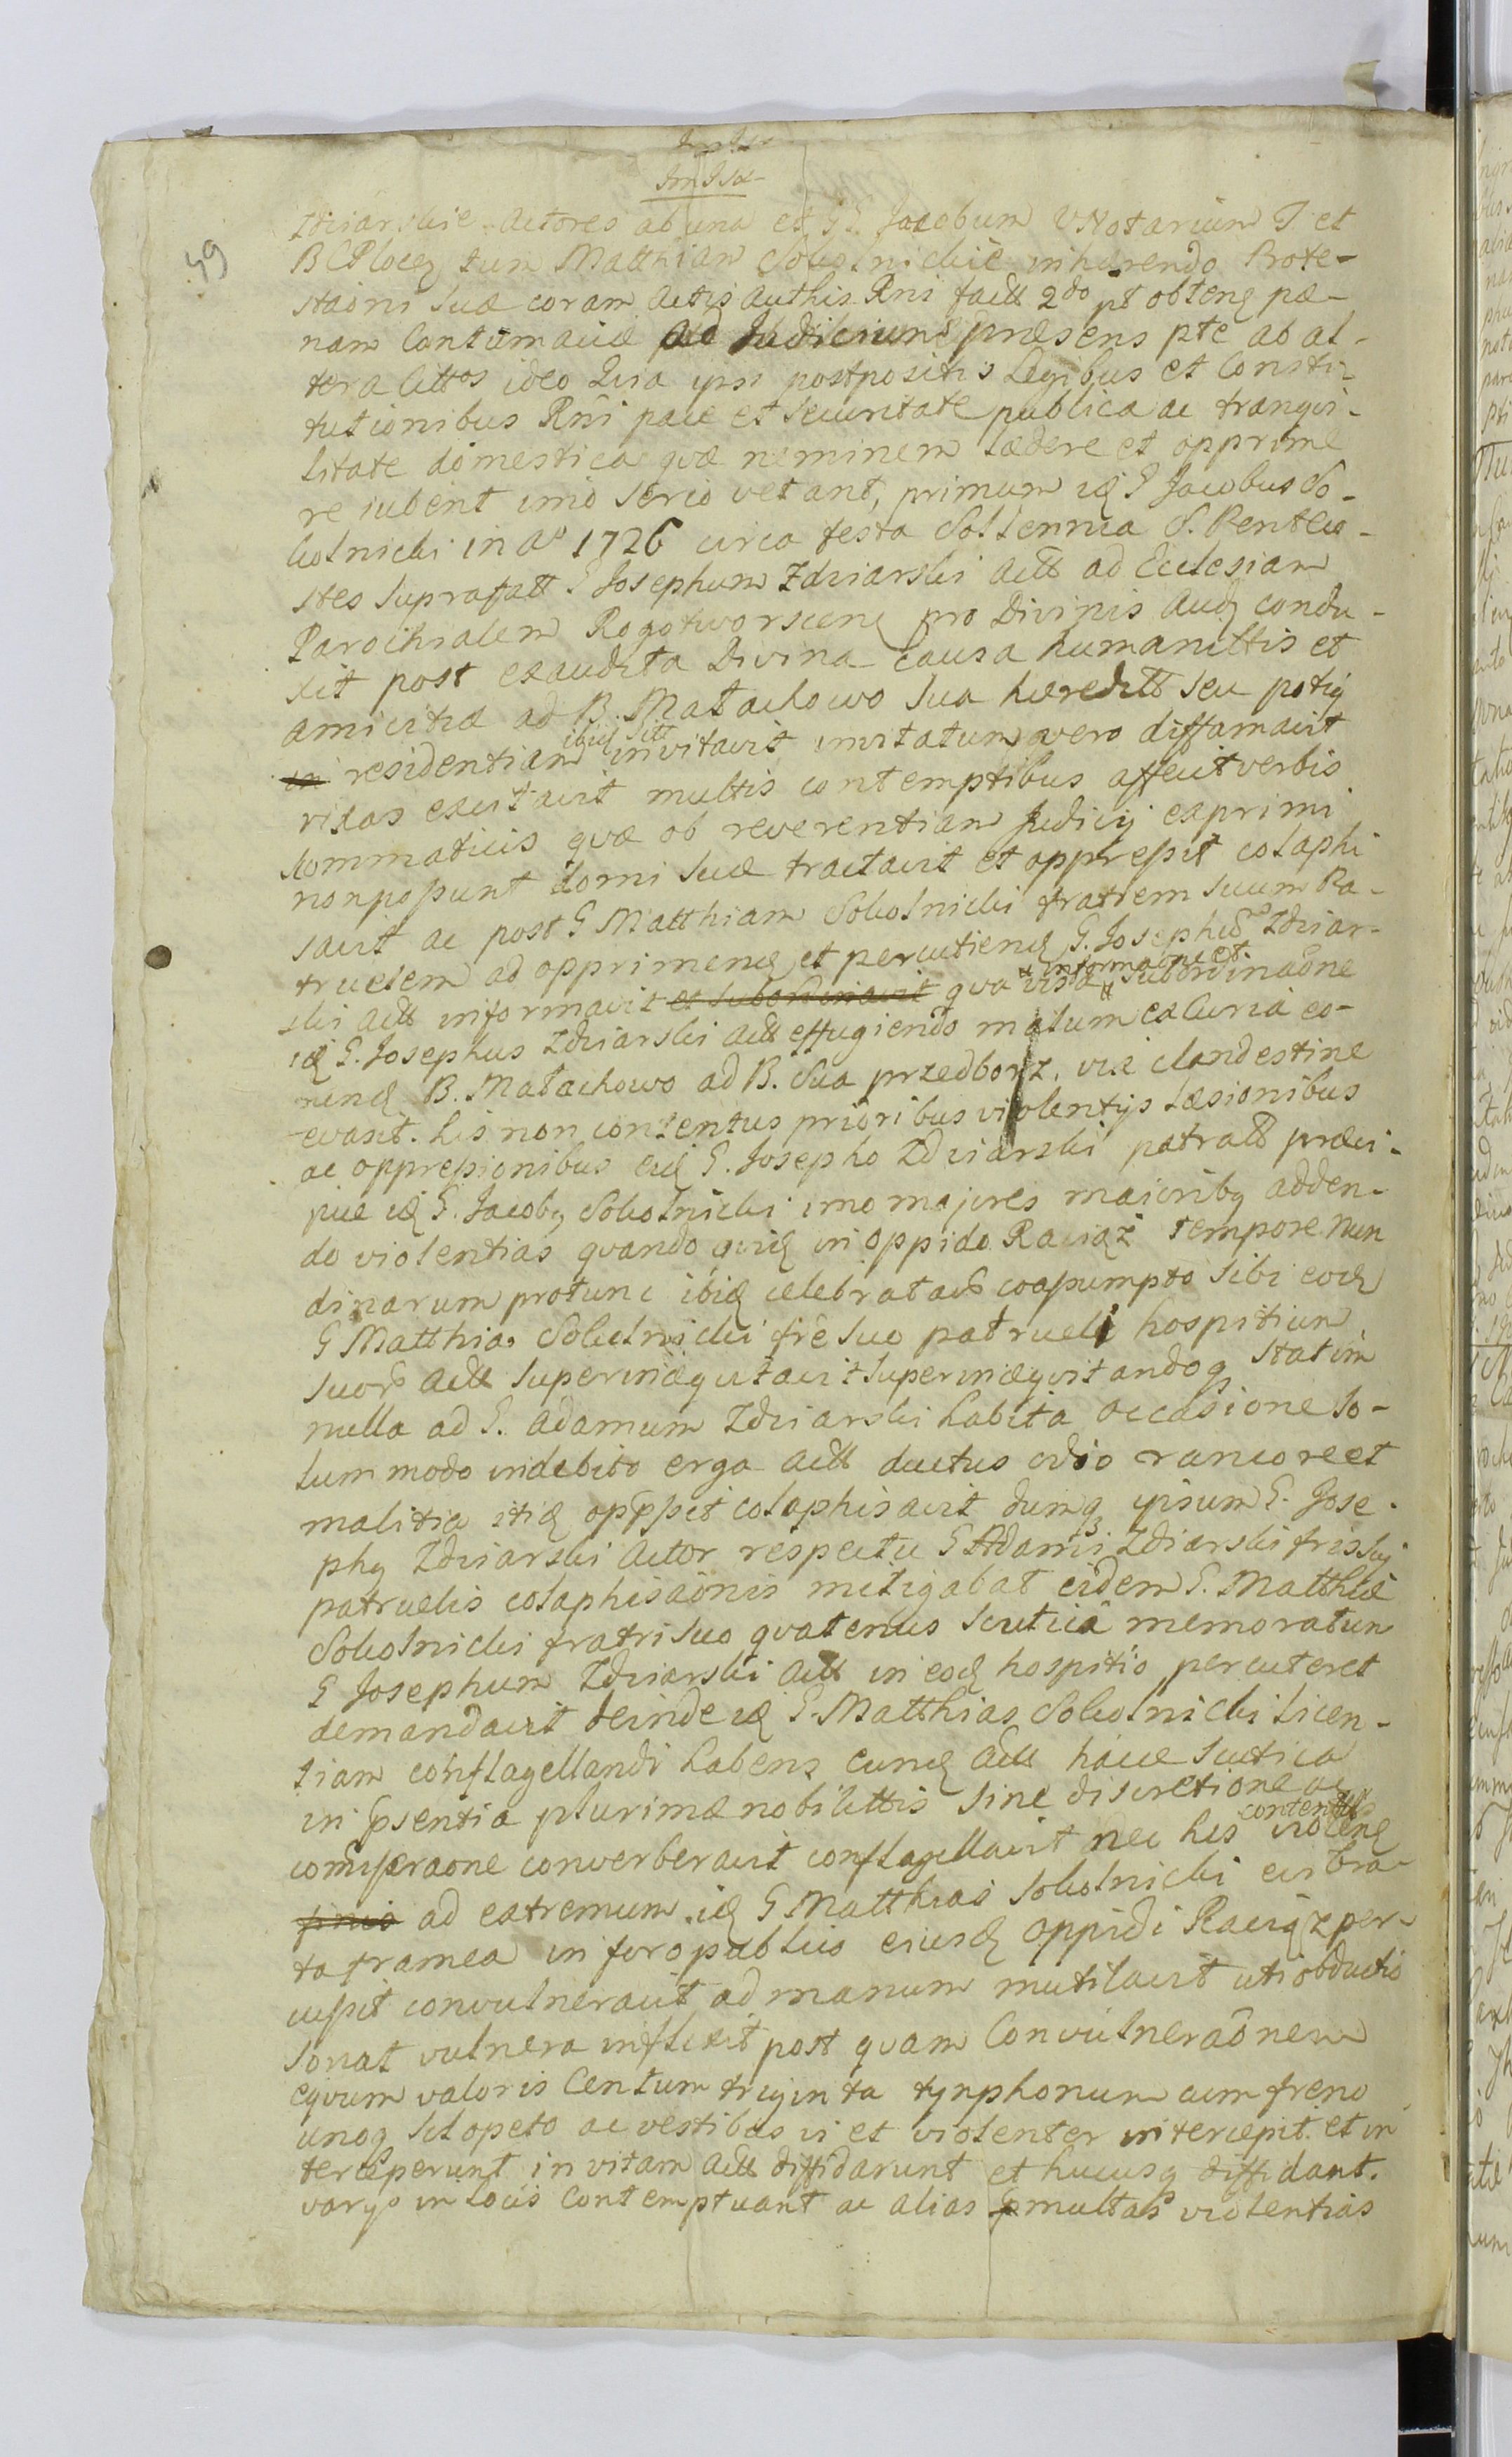 49
Zdziarskie Actores ab una et GG Jacobum VNotarium T. et
BCPlocen tum Matthiam Sokolnickie inhærendo Prote-
staõni suæ coram Actis Authis Rni factt 2do pt obtenq pæ-
nam Contumaciæ ad Judicium præsens pte ab al-
tera Cittos ideo Quia ipsi postpositis Legibus et Consti-
tutionibus Rñi pace et securitate publica ac tranqvi-
litate domestica qvæ neminem lædere et opprime
re iubent imò seriò vetant, primum idq G Jacobus So-
kolnicki in Ao 1726 circa festa Sollennia S. Pentheco-
stes suprafatt G Josephum Zdziarski Actt ad Ecclesiam
Parochialem Rogotworscenq pro Divinis Audq condu-
xit post exaudita Divina causa humanittis et
amicitiæ ad B. Małachowo sua hæreditt seu potiq
in residentiam ibidq sitt invitavit invitatum vero diffamavit
rixas excitavit multis contemptibus affecit verbis
scommaticis qvæ ob reverentiam Judicij exprimi
non possunt domi suæ tractavit et oppressit colaphi
savit ac post G Matthiam Sokolnicki fratrem suum Pa-
truelem ad opprimenq et percutienq G. Josephũ Zdziar-
ski Actt informavit et subordinavit qva visa informaõne et subordinaõne
idq G. Josephus Zdziarski Actt effugiendo malum ex Curia eo-
rundq B. Małachowo ad B. Sua przedborz, viæ clandestine
evasit. his non contentus prioribus violentijs læsionibus
ac oppressionibus eidq G. Josepho Zdziarski patratt præci-
pue idq G. Jacobq Sokolnicki imo majores maioribq adden-
do violentias qvando qvidq in oppido Raciąż tempore Nun
dinarum protunc ibidq celebratarũ coassumpto sibi eodq
G Matthia Sokolnicki frẽ suo patrueli hospitium
suorũ Actt superinæqvitavit superinæqvitandoq statim
nulla ad G. Adamum Zdziarski habita occasione so-
lum modo indebito erga Actt ductus odio rancore et
malitia ititdq oppssit colaphisavit dumq ipsum G. Jose-
phq Zdziarski Actor respectu G Adami Zdziarski fris sui
patruelis colaphisaõnis mitigabat eidem G. Matthiæ
Sokolnicki fratri suo qvatenus scuticâ memoratum
G Josephum Zdziarski Actt in eodq hospitio percuteret
demandavit deinde idq G. Matthias Sokolnicki licen-
tiam conflagellandi habens eundq Actt hacce scutica
in psentia plurimæ nobilittis sine discretione ac
comiseraõne converberavit conflagellavit nec his contentus violenq
ad extremum idq G Matthias Sokolnicki evibra-
ta framea in foro publico eiusdq oppidi Raciąż per-
cussit convulneravit ad manum mutilavit uti obductio
sonat vulnera inflixit post qvam Convulneraõnem
eqvum valoris Centum triginta tynphonum cum freno
unoq sclopeto ac vestibus vi et violenter intercepit. et in
terceperunt in vitam Actt diffidarunt et hucusq diffidant.
varijs in locis Contemptuant ac alias pmultas violentias